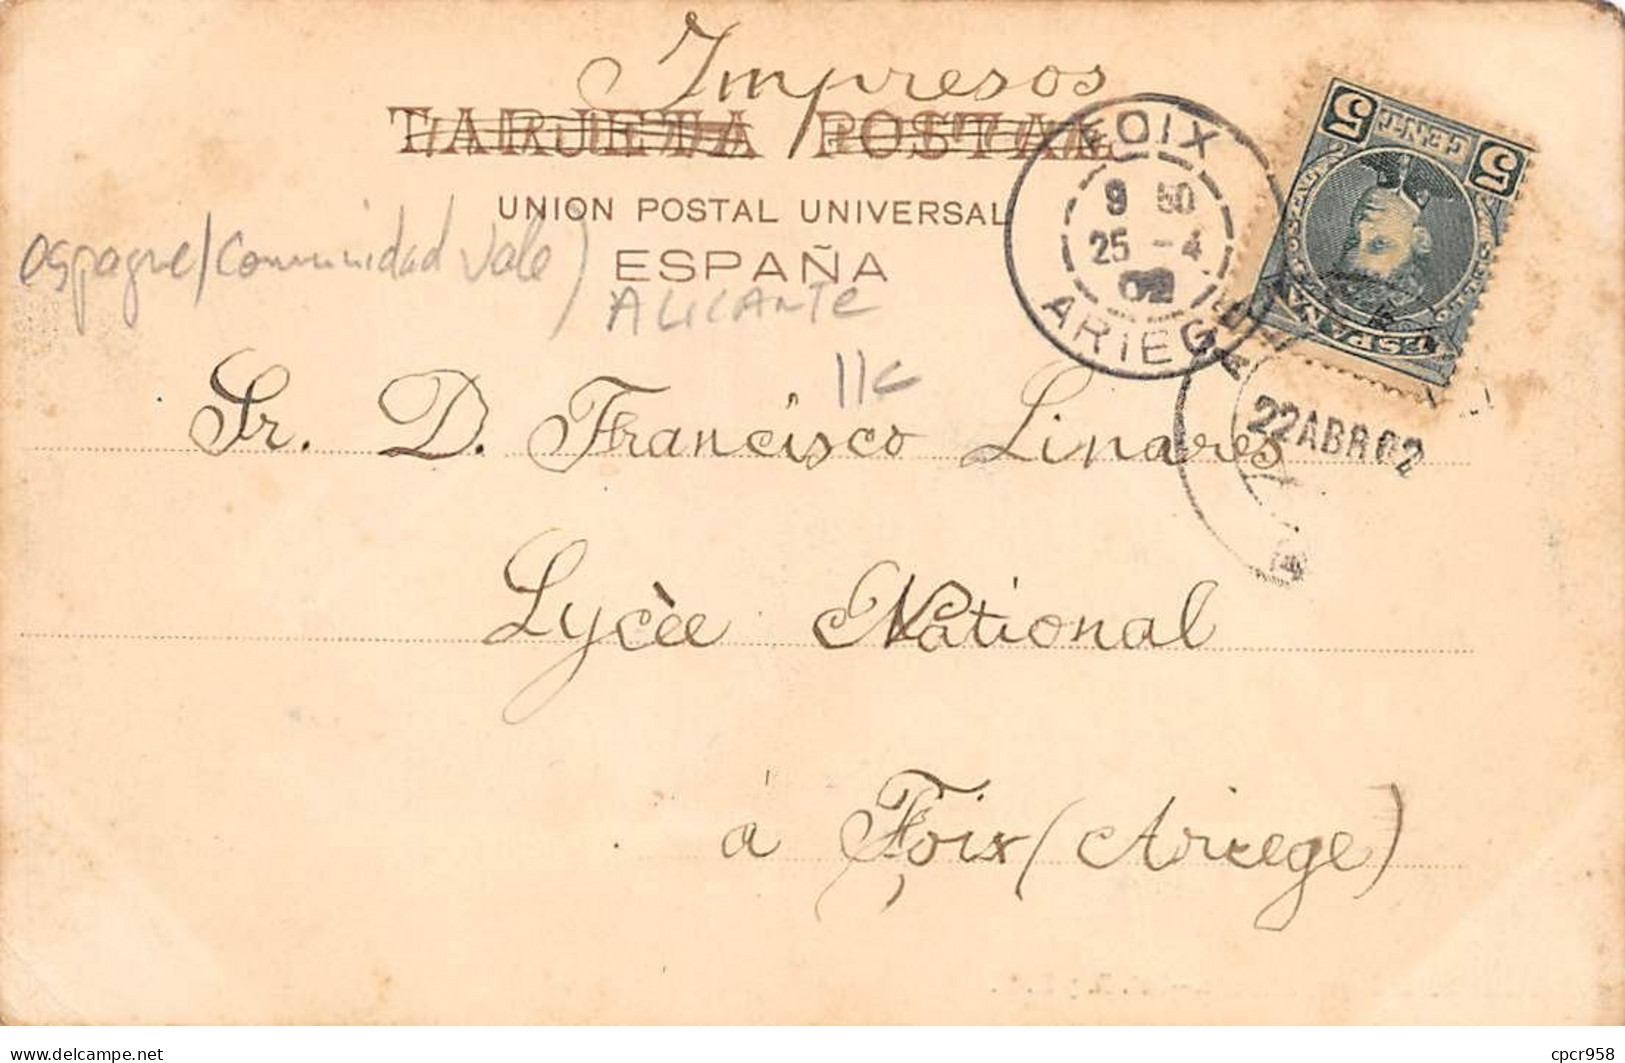 Impresos
TARJETA POSTAL
UNION POSTAL UNIVERSAL
ESPAÑA
espagne/Comunidad Vale)
ALICANTE
11c
FOIX
9 50
25 - 4
02
ARIEGE
5 CENTS 5
ESPAÑA
22 ABR 02
Sr. D. Francisco Linares
Lycèe National
á Foix (Ariege)
delcampe.net
cpcr958